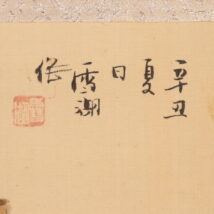 辛丑
夏
日
雪湖
作